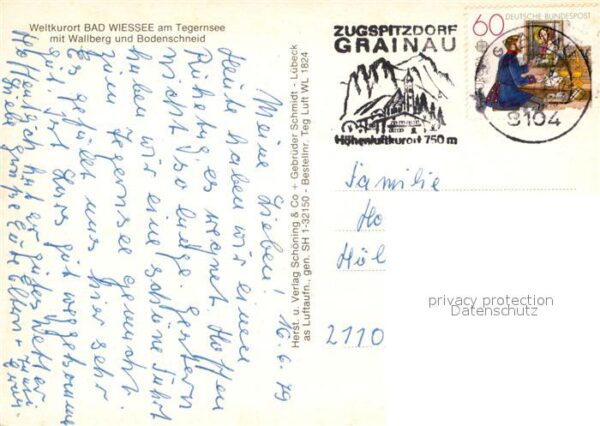 Weltkurort BAD WIESSEE am Tegernsee
mit Wallberg und Bodenschneid
ZUGSPITZDORF
GRAINAU
Höhenluftkurort 750 m
60 DEUTSCHE BUNDESPOST
8104
Herst. u. Verlag Schöning & Co + Gebrüder Schmidt - Lübeck
as Luftaufn., gen. SH 1-32150 - Bestellnr. Teg Luft WL 1824
16.6.79
Meine Lieben!
Heute haben wir einen
Ruhetag, es regnet. Hoffen
nicht so lange. Gestern
haben wir eine schöne Fahrt
zum Tegernsee gemacht.
Es gefällt uns hier sehr
gut. Sind
gut weggekommen
Hoffentlich habt Ihr gutes Wetter
Eure Eltern +
Familie
Ho
Höl
2110
privacy protection
Datenschutz